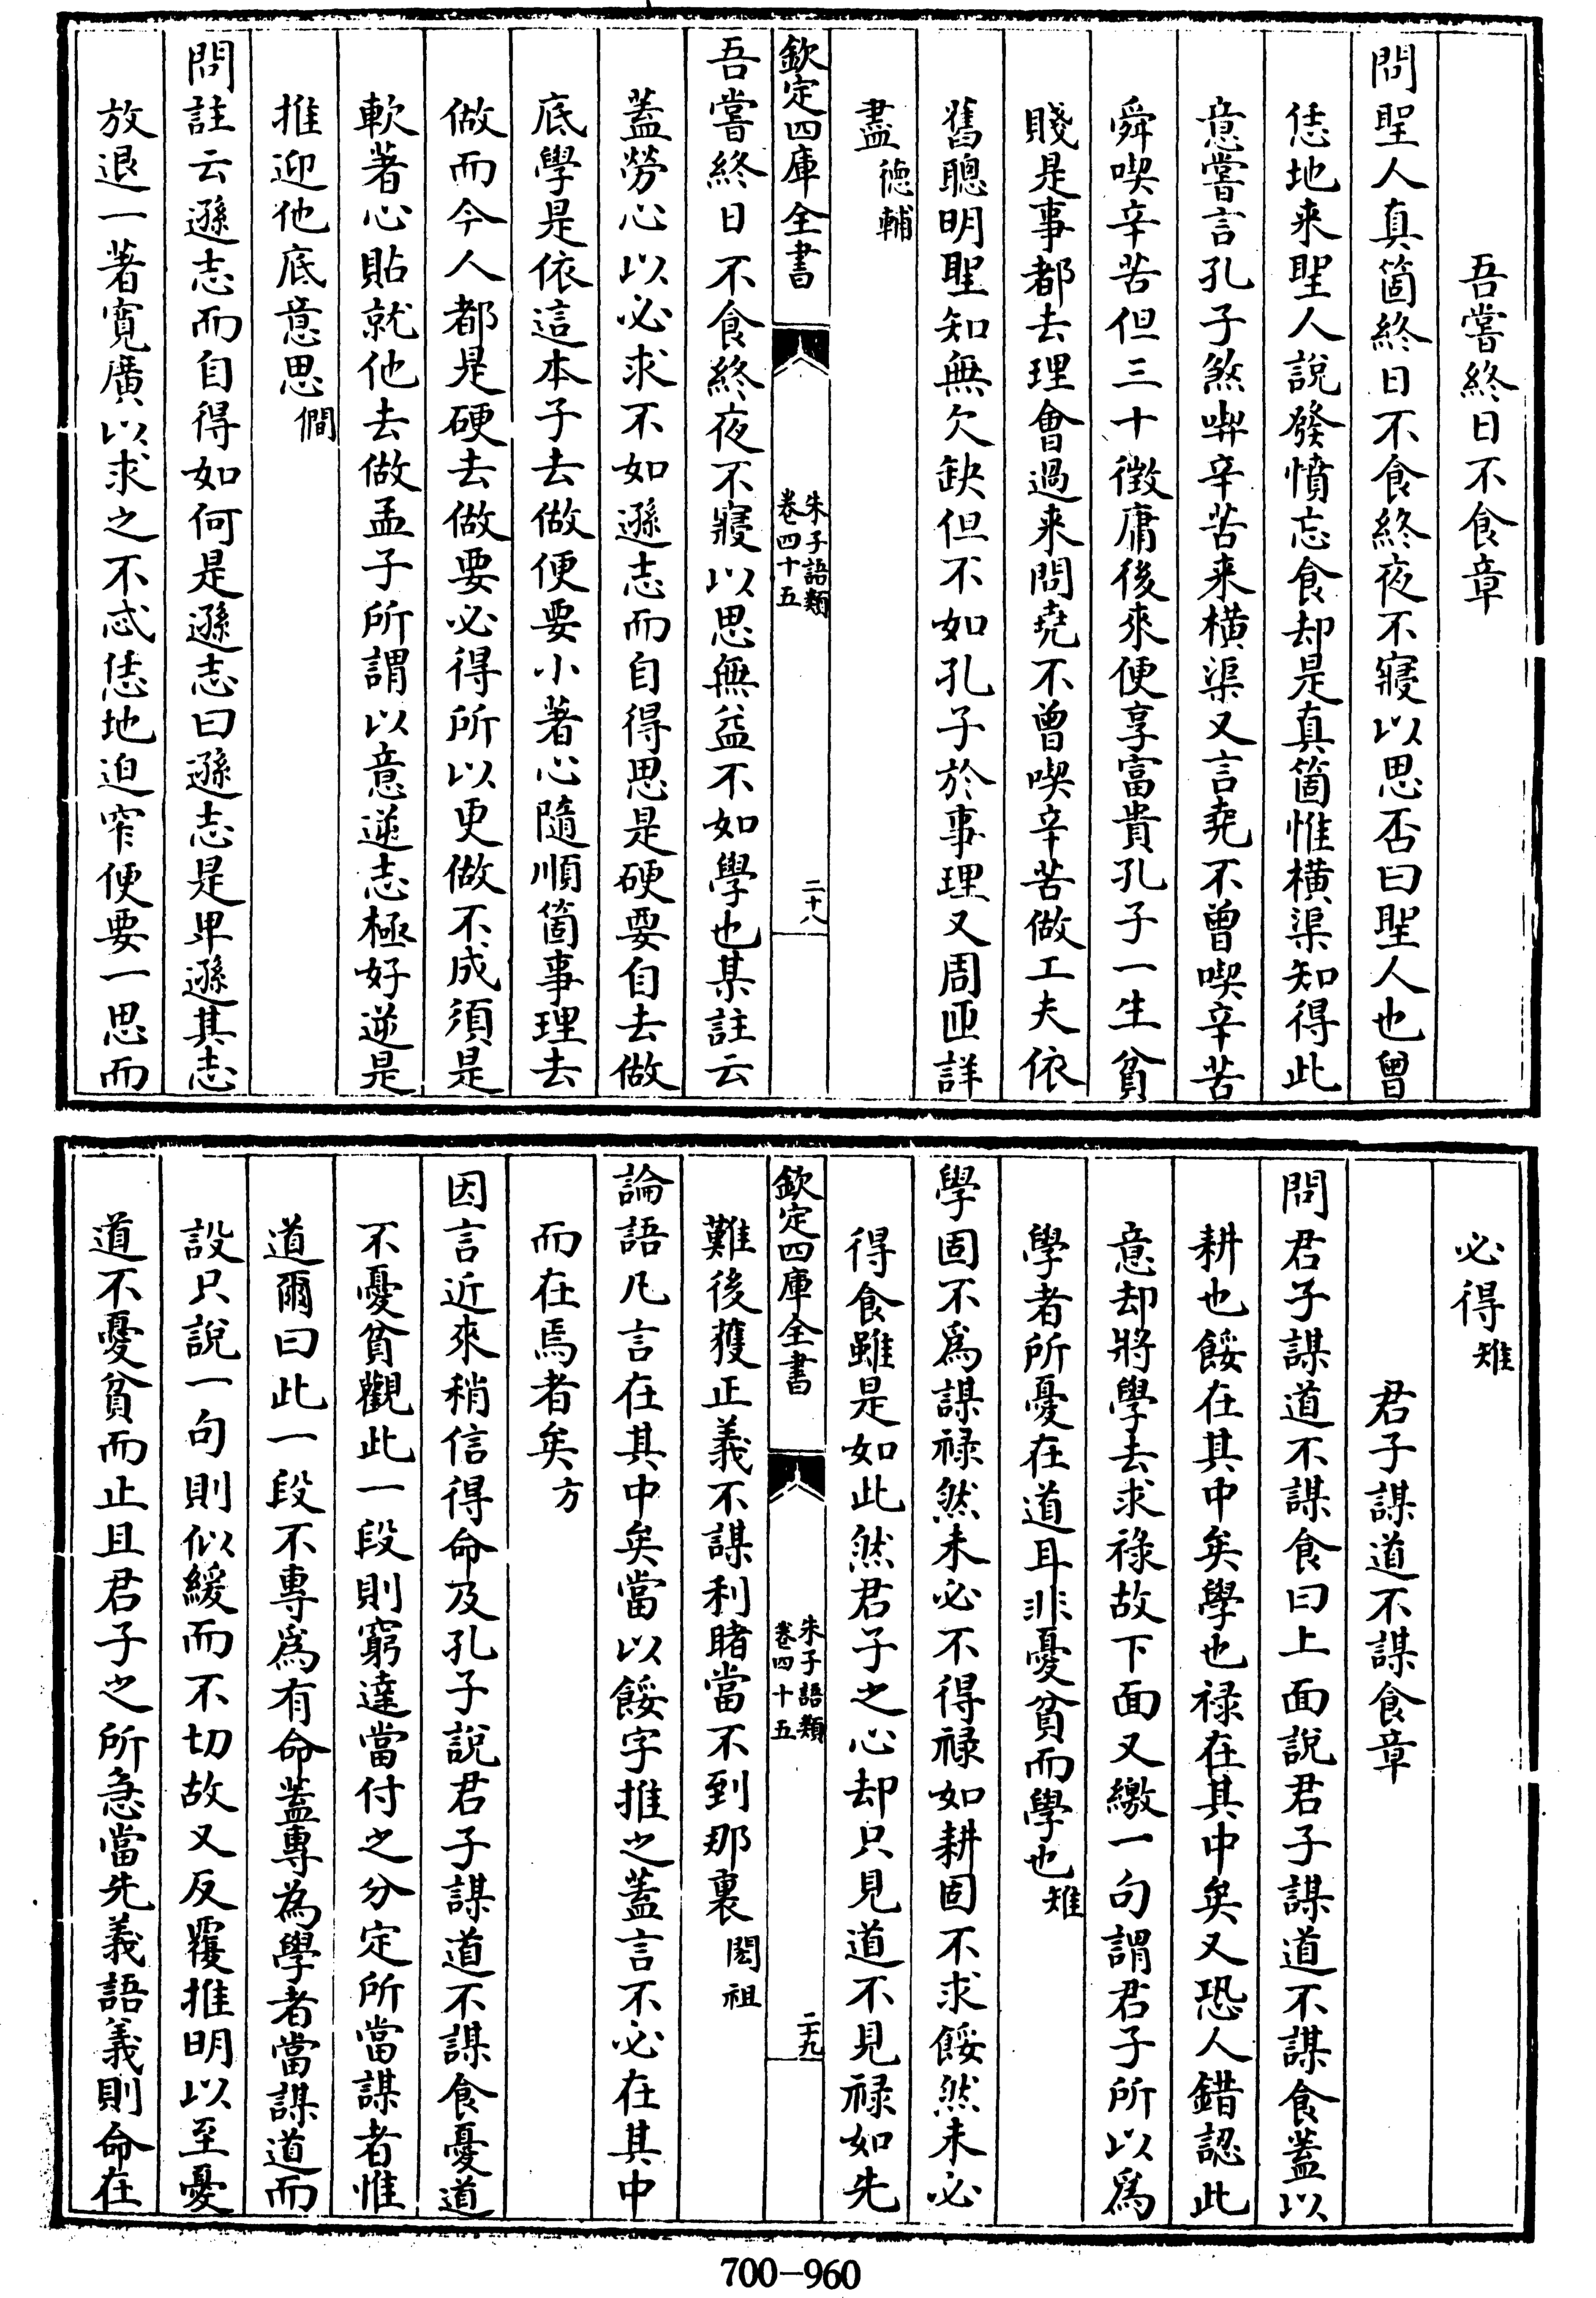 吾嘗終日不食章
問聖人真箇終日不食終夜不寢以思否曰聖人也曾
恁地来聖人說發憤忘食却是真箇惟横渠知得此
意嘗言孔子煞喫辛苦来横渠又言堯不曾喫辛苦
舜喫辛苦但三十徴庸後來便享富貴孔子一生貧
賤是事都去理會過来問堯不曾喫辛苦做工夫依
舊聰明聖知無欠缺但不如孔子於事理又周匝詳
盡德輔
欽定四庫全書
朱子語類
卷四十五
二十八
吾嘗終日不食終夜不寢以思無益不如學也某註云
蓋勞心以必求不如遜志而自得思是硬要自去做
底學是依這本子去做便要小著心隨順箇事理去
做而今人都是硬去做要必得所以更做不成須是
軟著心貼就他去做孟子所謂以意逆志極好逆是
推迎他底意思僩
問註云遜志而自得如何是遜志曰遜志是卑遜其志
放退一著寛廣以求之不忒恁地迫窄便要一思而
必得雉
君子謀道不謀食章
問君子謀道不謀食曰上面說君子謀道不謀食蓋以
耕也餒在其中矣學也禄在其中矣又恐人錯認此
意却將學去求祿故下面又繳一句謂君子所以爲
學者所憂在道耳非憂貧而學也雉
學固不爲謀禄然未必不得禄如耕固不求餒然未必
得食雖是如此然君子之心却只見道不見禄如先
欽定四庫全書
朱子語類
卷四十五
二十九
難後獲正義不謀利睹當不到那裏閎祖
論語凡言在其中矣當以餒字推之蓋言不必在其中
而在焉者矣方
因言近來稍信得命及孔子說君子謀道不謀食憂道
不憂貧觀此一段則窮達當付之分定所當謀者惟
道爾曰此一段不專爲有命蓋專為學者當謀道而
設只說一句則似緩而不切故又反覆推明以至憂
道不憂貧而止且君子之所急當先義語義則命在
700-960